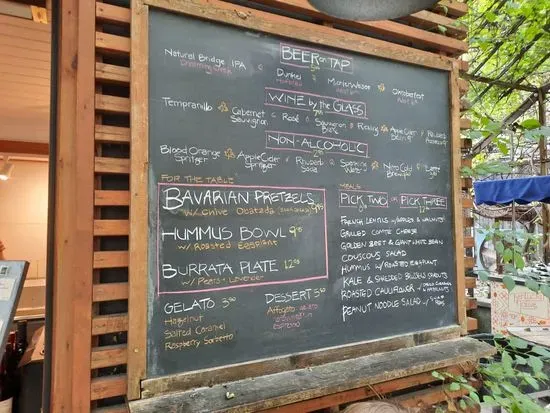 BEER on TAP
Natural Bridge IPA Dunkel Märzen Weisse Oktoberfest
WINE by the GLASS
Tempranillo Cabernet Sauvignon Rosé Sauvignon Blanc Riesling Apple Cider Rhubarb
NON-ALCOHOLIC
Blood Orange Spritzer Apple Cider Spritzer Rhubarb Soda Sparkling Water Nitro Cold Brew
FOR THE TABLE
BAVARIAN PRETZELS
w/ Chive Obatzda 9.95
HUMMUS BOWL 9.95
w/ Roasted Eggplant
BURRATA PLATE 12.95
w/ Pears + Lavender
GELATO 3.00
Hazelnut
Salted Caramel
Raspberry Sorbetto
DESSERT 5.00
Affogato
espresso
MEALS
PICK TWO or PICK THREE
FRENCH LENTILS w/ APPLES & WALNUTS
GRILLED COMTE CHEESE
GOLDEN BEET & GIANT WHITE BEAN
COUSCOUS SALAD
HUMMUS w/ ROASTED EGGPLANT
KALE & SHREDDED BRUSSELS SPROUTS
ROASTED CAULIFLOWER w/ DRIED CURRANTS & HAZELNUTS
PEANUT NOODLE SALAD w/ SNAP PEAS